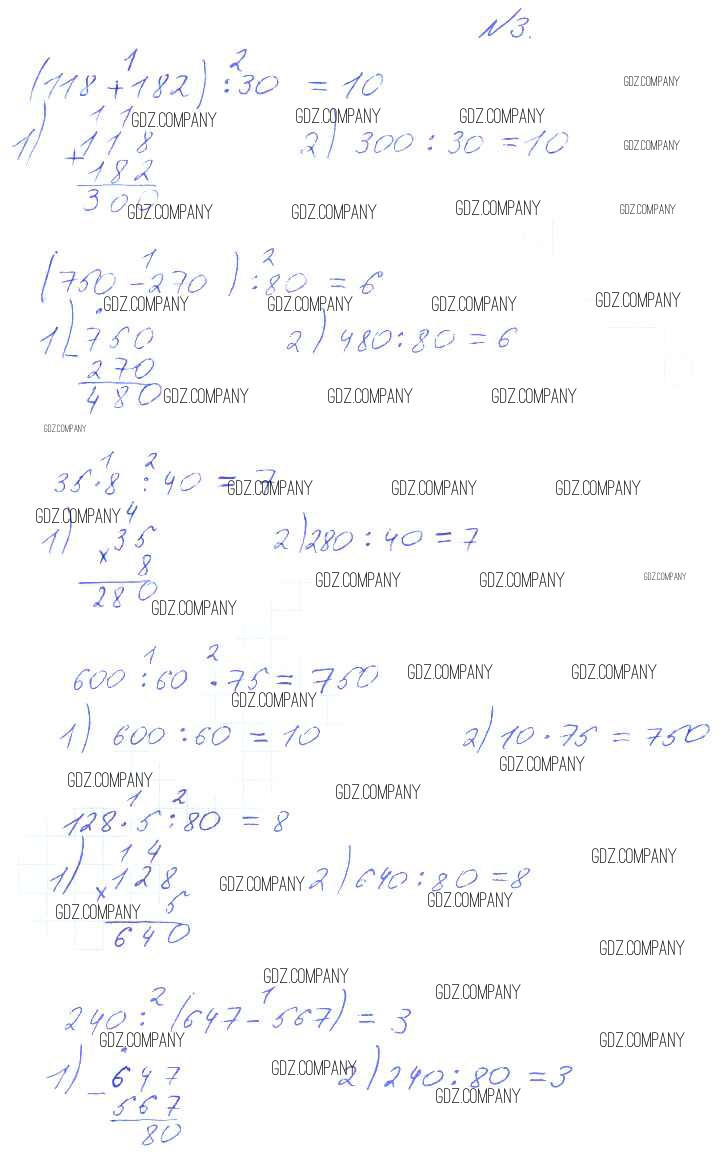 №3.
1 2
(118 + 182) : 30 = 10 GDZ.COMPANY
1 1 GDZ.COMPANY GDZ.COMPANY GDZ.COMPANY
1) 118 2) 300 : 30 = 10 GDZ.COMPANY
+ 182
300 GDZ.COMPANY GDZ.COMPANY GDZ.COMPANY GDZ.COMPANY
1 2
(750 - 270) : 80 = 6
GDZ.COMPANY GDZ.COMPANY GDZ.COMPANY GDZ.COMPANY
1) 750 2) 480 : 80 = 6
- 270
480 GDZ.COMPANY GDZ.COMPANY GDZ.COMPANY
GDZ.COMPANY
1 2
35 · 8 : 40 = 7 GDZ.COMPANY GDZ.COMPANY GDZ.COMPANY
GDZ.COMPANY 4
1) 35 2) 280 : 40 = 7
× 8
280 GDZ.COMPANY GDZ.COMPANY GDZ.COMPANY
GDZ.COMPANY
1 2
600 : 60 · 75 = 750 GDZ.COMPANY GDZ.COMPANY
GDZ.COMPANY
1) 600 : 60 = 10 2) 10 · 75 = 750
GDZ.COMPANY
GDZ.COMPANY GDZ.COMPANY
1 2
128 · 5 : 80 = 8
1 4 GDZ.COMPANY
1) 128 GDZ.COMPANY 2) 640 : 80 = 8
× 5 GDZ.COMPANY
GDZ.COMPANY
640 GDZ.COMPANY
GDZ.COMPANY GDZ.COMPANY
2 1
240 : (647 - 567) = 3
GDZ.COMPANY GDZ.COMPANY
1) 647 GDZ.COMPANY 2) 240 : 80 = 3
- 567 GDZ.COMPANY
80